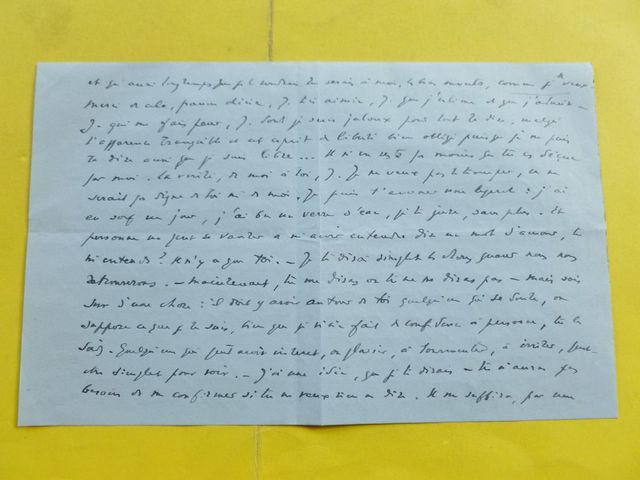 et qui aussi longtemps que je voudrai tu serais à moi, comme je veux.
Merci de cela, J. que j'aime, J. que j'estime et que j'admire —
J. qui me fais peur, J. dont je suis jaloux pour tout te dire, malgré
l'apparence tranquille et cet esprit de liberté bien obligé puisque je ne puis
te dire aussi que je suis libre... Il n'en reste pas moins que tu es
par moi. La vérité, de moi à toi, J. Je ne veux pas te tromper, ce ne
serait pas digne de toi ni de moi. Je puis t'avouer une : j'ai
eu soif un jour, j'ai bu un verre d'eau, je te jure, sans plus. Et
personne ne peut se vanter de m'avoir entendu dire un mot d'amour, tu
m'entends? Il n'y a que toi. — Je te dirai les choses quand nous nous
retrouverons. — Maintenant, tu me diras ou tu ne me diras pas — mais sois
sûr d'une chose : il doit y avoir autour de toi quelqu'un qui se doute, ou
suppose ce que je te suis, bien que je n'aie fait de confidence à personne, tu le
sais. Quelqu'un qui peut avoir intérêt, ou plaisir, à tourmenter, à
pour voir. — J'ai une idée, que je te dirais — tu n'auras pas
besoin de me confirmer si tu ne veux rien dire. Il me suffira, par